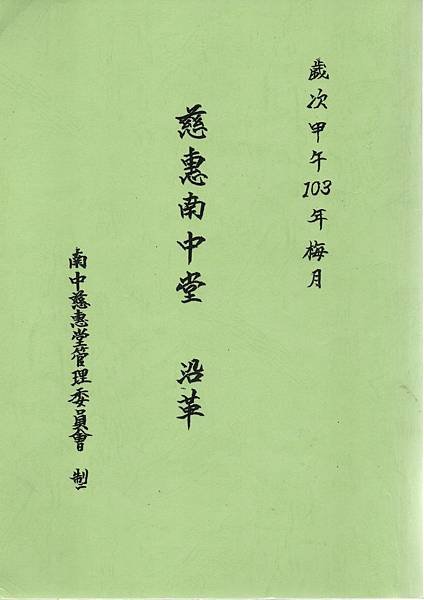 歲次甲午103年梅月
慈惠南中堂 沿革
南中慈惠堂管理委員會 制